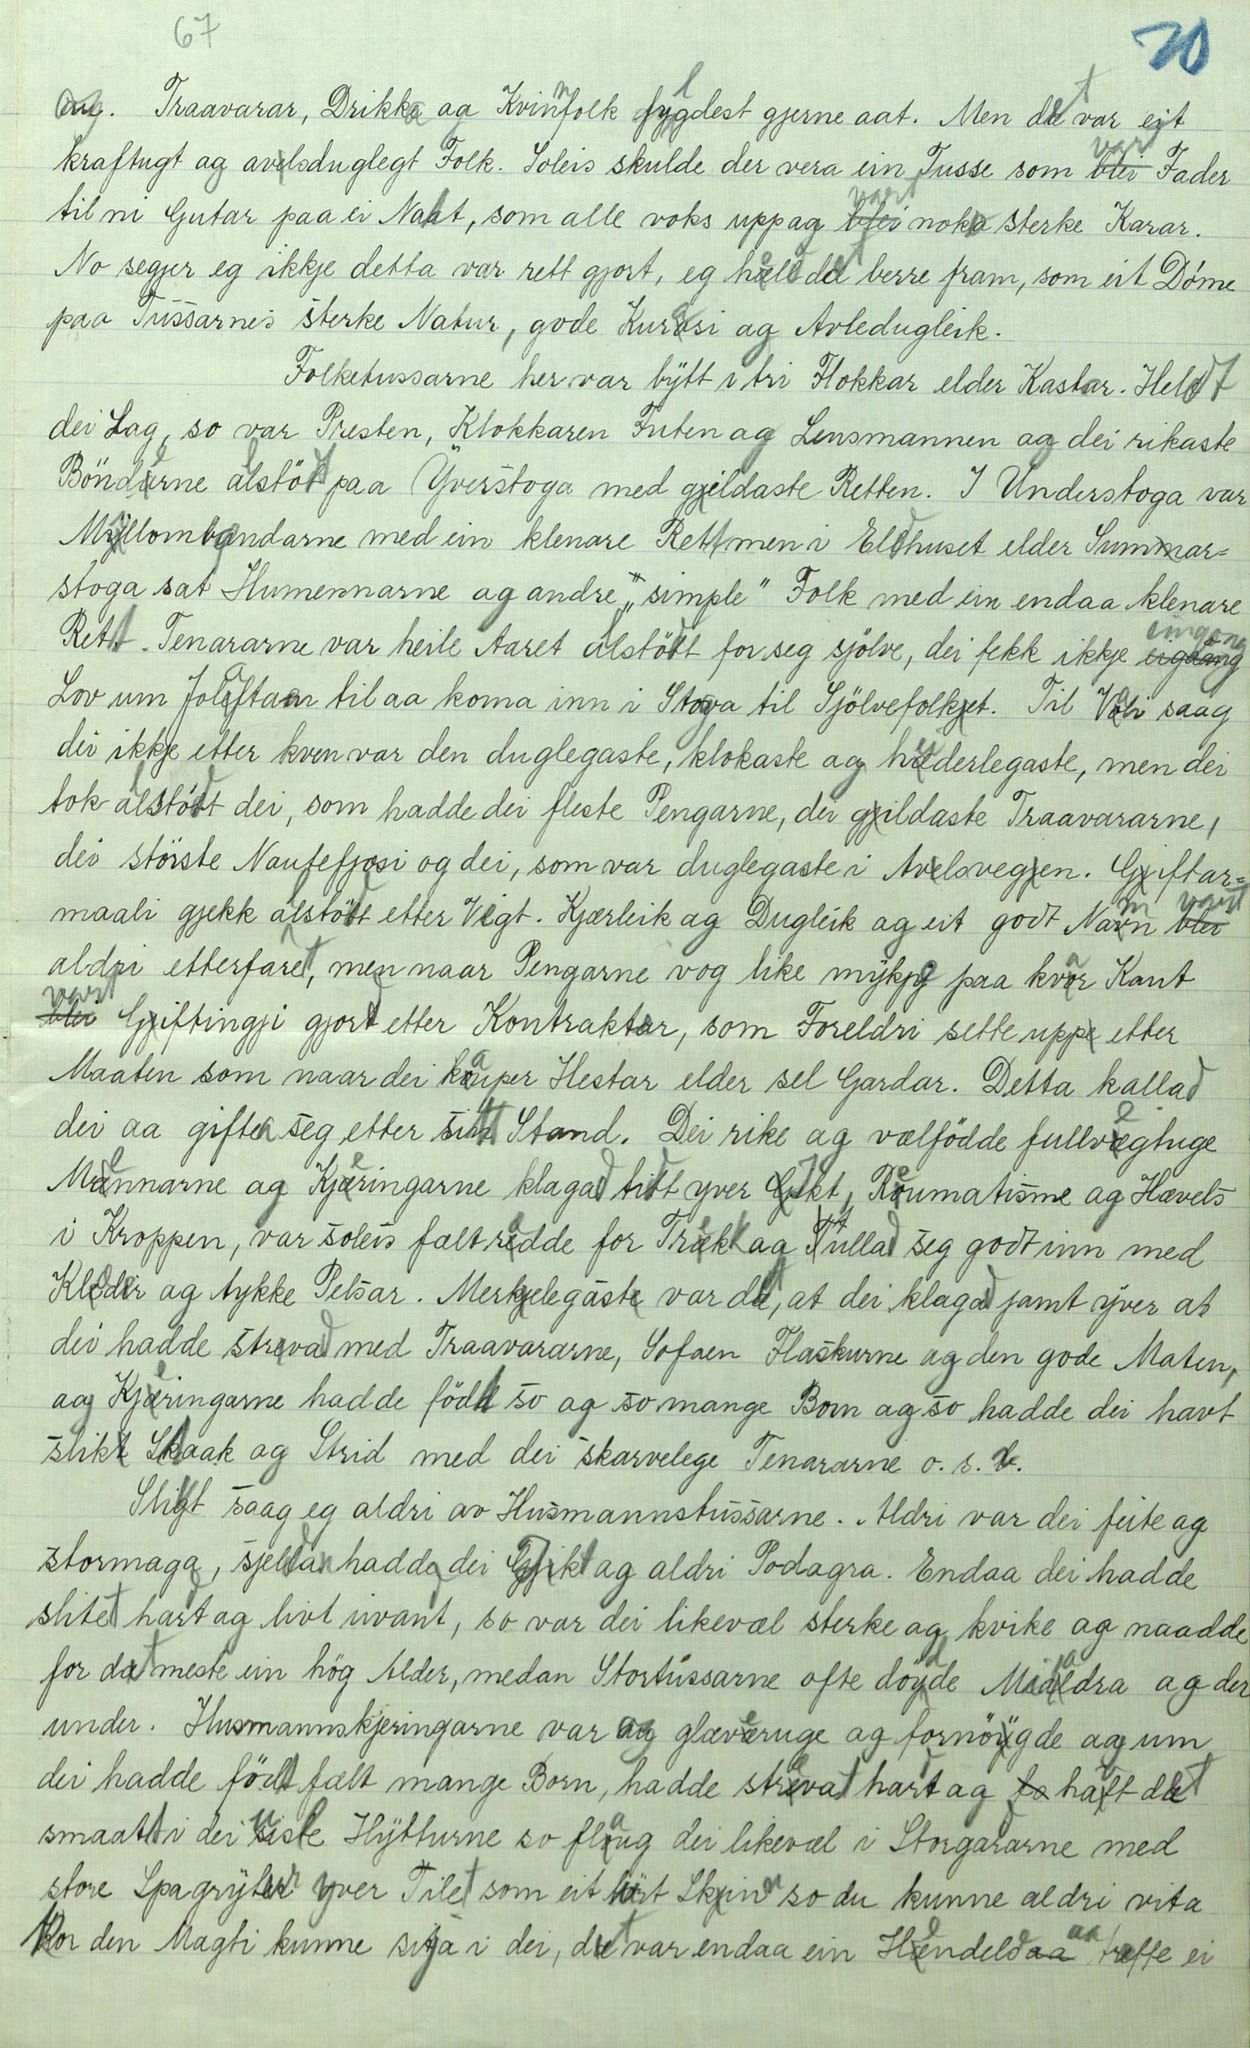 67
20
aug. Traavarar, Drikka ag Kvinnfolk fylgdest gjerne aat. Men det var eit
kraftugt ag avlsduglegt Folk. Soleis skulde der vera ein Tusse som vart Fader
til ni Gutar paa ei Natt, som alle voks upp ag vart noko sterke Karar.
No segjer eg ikkje detta var rett gjort, eg held det berre fram, som eit Döme
paa Tussarnes sterke Natur, gode Kurasi ag Avledugleik.
Folketussarne her var bytt i tri Flokkar elder Kastar. Heldt
dei Lag, so var Presten, Klokkaren Futen ag Lensmannen ag dei rikaste
Bönderne alstödt paa Yverstoga med gildaste Retten. I Understoga var
Myllombøndarne med ein klenare Rett men i Eldhuset elder Sumar=
stoga sat Husmennarne ag andre "simple" Folk med ein endaa klenare
Rett. Tenararne var heile Aaret alstödt for seg sjölve, dei fekk ikkje eingong
Lov um Jolaftan til aa koma inn i Stoga til Sjölvefolket. Til Vali saag
dei ikkje etter kven var den duglegaste, klokaste ag hederlegaste, men dei
tok alstödt dei, som hadde dei fleste Pengarne, dei gildaste Traavararne,
dei störste Nautefjosi og dei, som var duglegaste i Avlsvegen. Giftar=
maali gjekk alstödt etter Vigt. Kjærleik ag Dugleik ag eit godt Namn vart
aldri etterfaret, men naar Pengarne vog like mykje paa kvar Kant
vart Giftingji gjord etter Kontraktar, som Foreldri sette upp etter
Maaten som naar dei kauper Hestar elder sel Gardar. Detta kallad
dei aa gifta seg etter sitt Stand. Dei rike ag vælfödde fullvegtuge
Mennarne ag Kjeringarne klagad tidt yver Gikt, Reumatisme ag Hævels
i Kroppen, var soleis fælt redde for Trekk ag tullad seg godt inn med
Kleder ag tykke Pelsar. Merkelegaste var det, at dei klagad jamt yver at
dei hadde strevad med Traavararne, Sofaen Flaskurne ag den gode Maten,
ag Kjeringarne hadde född so ag so mange Born ag so hadde dei havt
slik Skaak ag Strid med dei skarvelege Tenararne o. s. v.
Sligt saag eg aldri av Husmannstussarne. Aldri var dei feite ag
stormaga, sjeldan hadde dei Gikt ag aldri Podagra. Endaa dei hadde
slitet hardt ag livt uvant, so var dei likevæl sterke ag kvike ag naadde
for det meste ein hög Alder, medan Stortussarne ofte döydde Midaldra ag der
under. Husmannskjeringarne var ag glæveruge ag fornöygde ag um
dei hadde född fælt mange Born, hadde strevat hardt ag haft det
smaatt i dei usle Hytturne so flaug dei likevæl i Storgardarne med
store Spagryter yver Tilet som eit tört Skinn so du kunne aldri vita
kor den Magti kunne sitja i dei, det var endaa ein Hendelse aa treffe ei